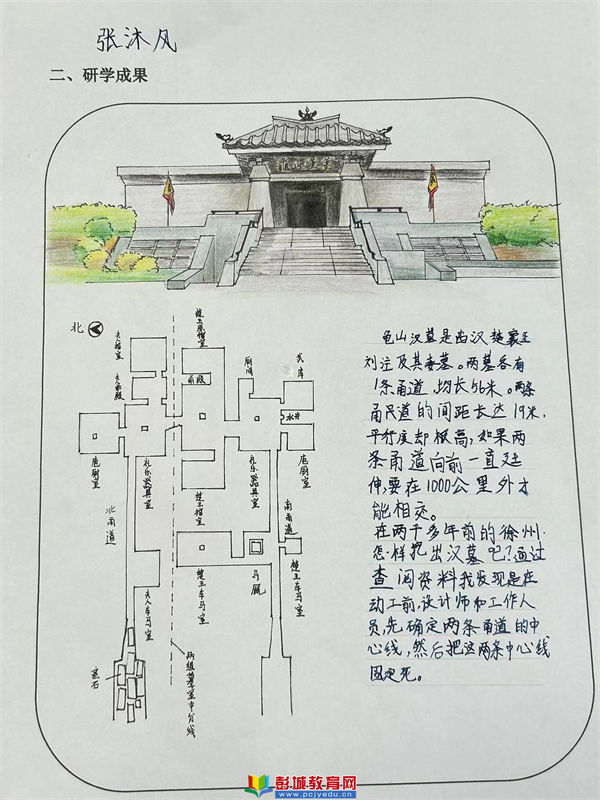 张沐风
二、研学成果
龟山汉墓
北
夫棺室
夫前殿
庖厨室
礼乐器具室
北甬道
夫人车马室
塞石
楚王原棺室
前殿
厕间
武库
水井
楚王棺室
礼乐器具室
庖厨室
南甬道
楚王车马室
马厩
楚王车马室
两组墓室中分线
龟山汉墓是西汉楚襄王
刘注及其妻墓。两墓各有
1条甬道,均长56米。两条
甬尺道的间距长达19米,
平行度却极高,如果两
条甬道向前一直延
伸,要在1000公里外才
能相交。
在两千多年前的徐州.
怎样挖出汉墓吧?通过
查阅资料我发现是在
动工前,设计师和工作人
员,先确定两条甬道的中
心线,然后把这两条中心线
固定死。
彭城教育网
www.pcjyedu.cn